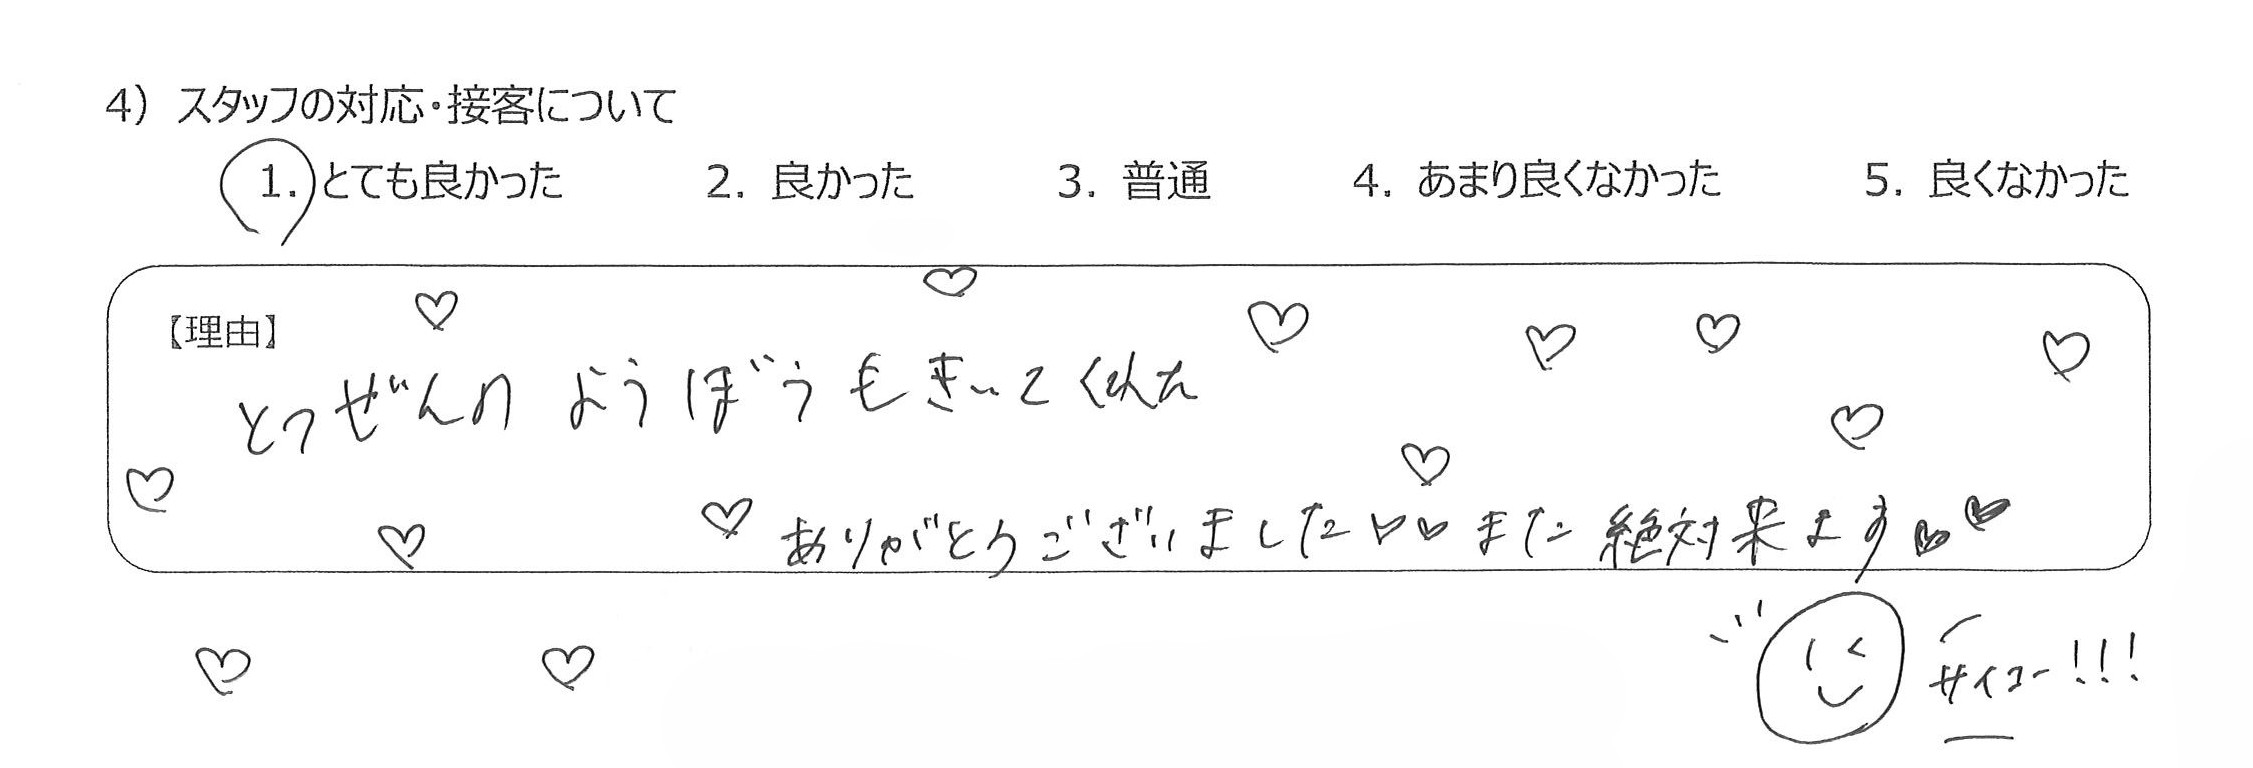 4) スタッフの対応・接客について
1. とても良かった 2. 良かった 3. 普通 4. あまり良くなかった 5. 良くなかった
【理由】
とつぜんの ようぼうもきいてくれた
ありがとうございました♡♡また絶対来ます♥♥
サイコー!!!